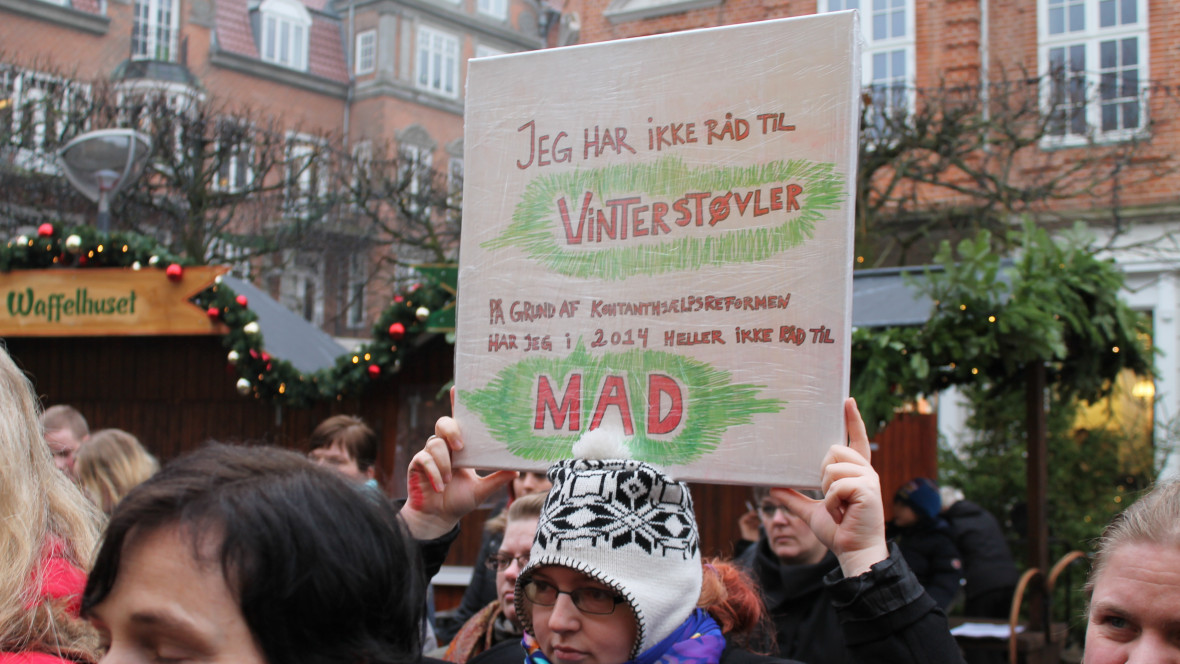 Waffelhuset
JEG HAR iKKE RÅD TiL
ViNTERSTØVLER
PÅ GRUND AF KONTANTHJÆLPSREFORMEN
HAR JEG i 2014 HELLER iKKE RÅD TiL
MAD